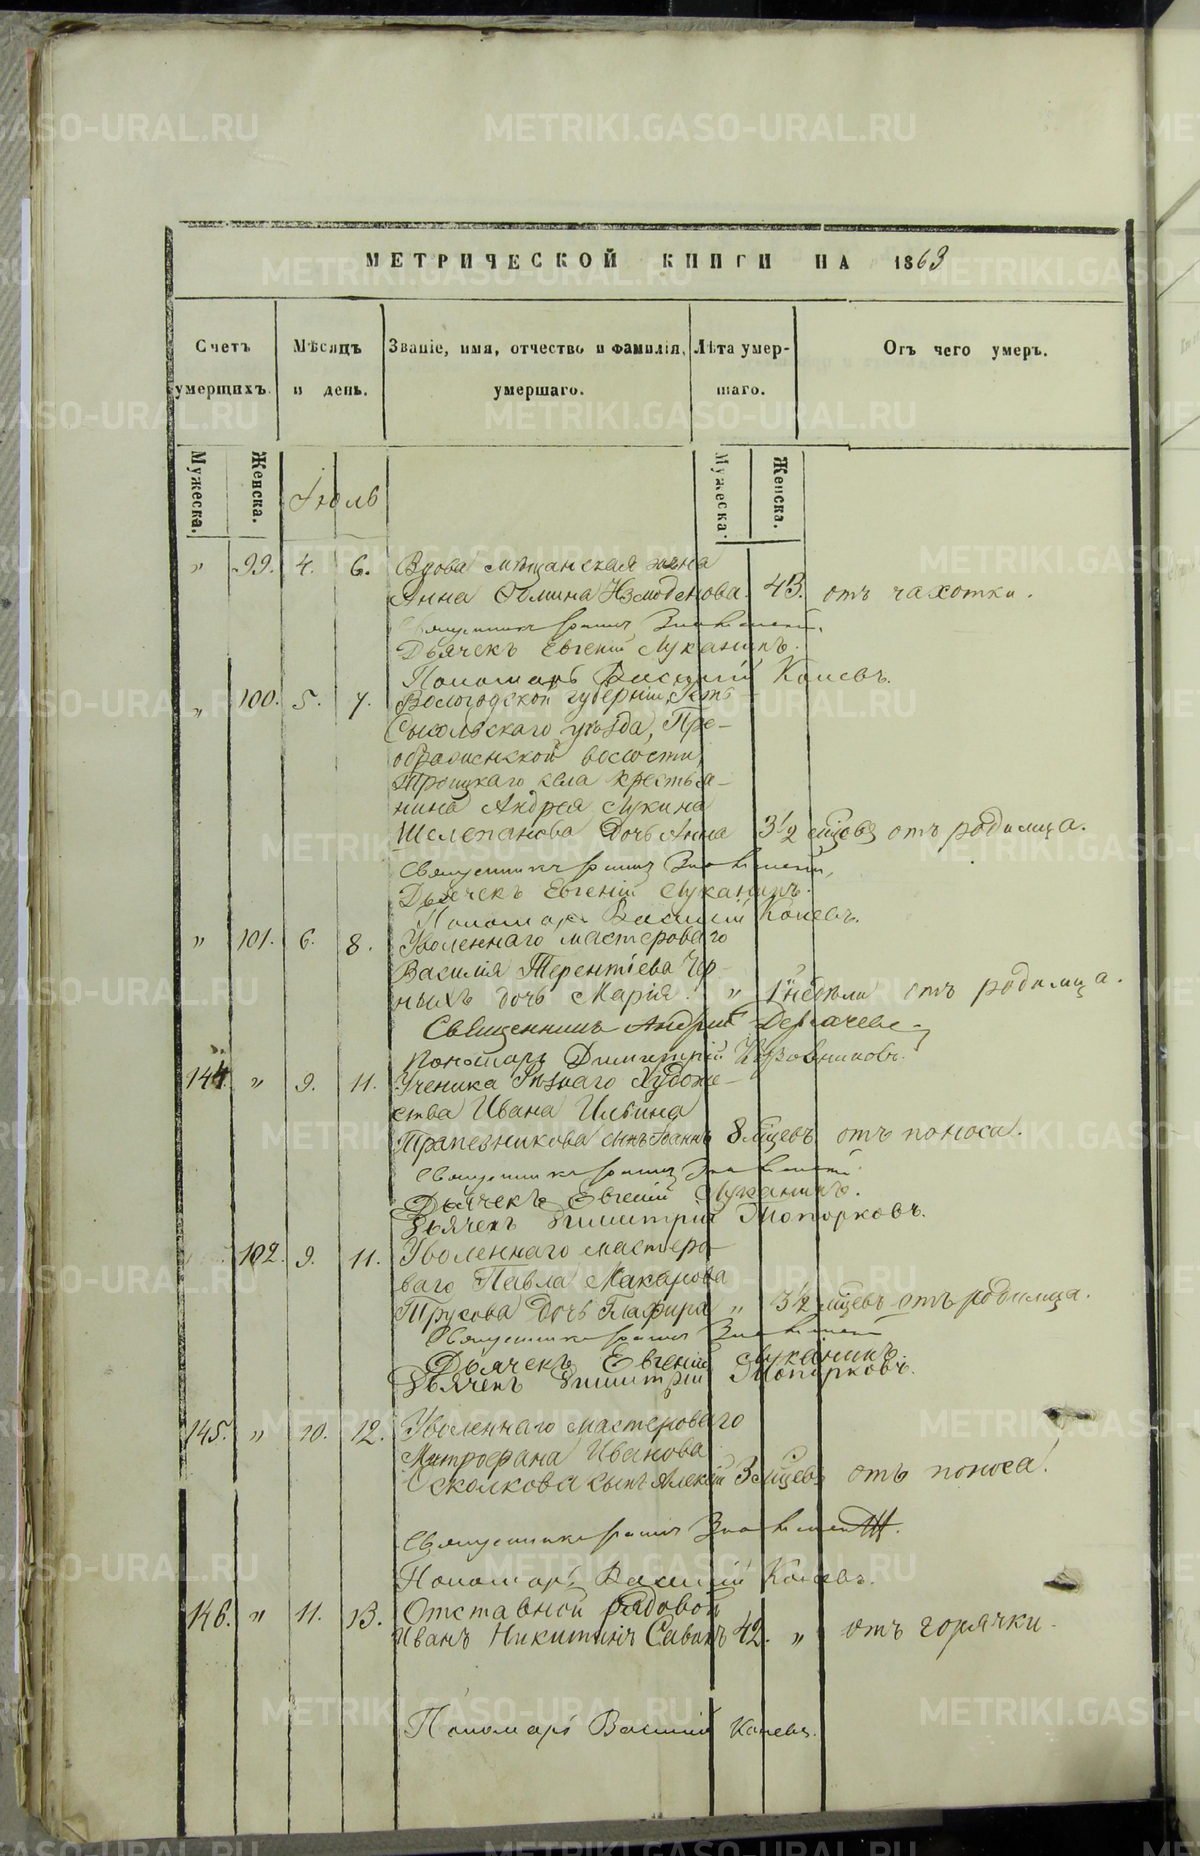 МЕТРИЧЕСКОЙ КНИГИ НА 1863
Счетъ умерщихъ.
Мѣсяцъ и день.
Званіе, имя, отчество и фамилія, умершаго.
Лѣта умершаго.
Отъ чего умеръ.
Мужеска. Женска. Іюль Мужеска. Женска.
" 99. 4. 6. Вдова мѣщанская жена
Анна Ѳомина 43. отъ чахотки.
Священникъ
Дьячекъ Евгеній Луканинъ.
Пономарь Василій Коневъ.
" 100. 5. 7. Вологодской губерніи, Усть
Сысольскаго уѣзда, Пре-
ображенской волости,
Троицкаго села крестья-
нина Андрея Лукина
Шелепанова дочь Анна 3½ мѣсяцовъ отъ родимца.
Священникъ
Дьячекъ Евгеній Луканинъ.
Пономарь Василій Коневъ.
" 101. 6. 8. Уволеннаго мастероваго
Василія Терентіева Чер-
ныхъ дочь Марія. " 1 недѣли отъ родимца.
Священникъ Андрей Дерячевъ
Пономарь Димитрій
144. " 9. 11. Ученика Рѣзнаго Художе-
ства Ивана Ильина
Трапезникова сынъ Іоаннъ 8 мѣсяцевъ отъ поноса.
Священникъ
Дьячекъ Евгеній Луканинъ.
Дьячекъ Димитрій Топорковъ.
102. 9. 11. Уволеннаго мастеро-
ваго Павла Макарова
Трусова дочь Глафира " 3½ мѣсяцевъ отъ родимца.
Священникъ
Дьячекъ Евгеній Луканинъ.
Дьячекъ Димитрій Топорковъ.
145. " 10. 12. Уволеннаго мастероваго
Митрофана Иванова
Осколкова сынъ Алексій 3 мѣсяцевъ отъ поноса.
Священникъ
Пономарь Василій Коневъ.
146. " 11. 13. Отставной рядовой
Иванъ Никитинъ Савинъ 42. " отъ горячки.
Пономарь Василій Коневъ.
METRIKI.GASO-URAL.RU